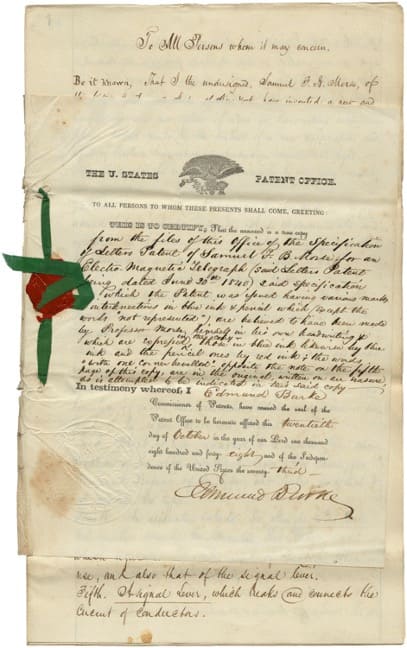 To All Persons whom it may concern.
Be it known, That I the undersigned, Samuel F. B. Morse, of
have invented a new and
THE U. STATES PATENT OFFICE.
TO ALL PERSONS TO WHOM THESE PRESENTS SHALL COME, GREETING:
THIS IS TO CERTIFY, That the annexed is a true copy
from the files of this Office of the Specification
of Letters Patent of Samuel F. B. Morse for an
Electro Magnetic Telegraph (said Letters Patent
being dated June 20th 1840) said specification
(which the Patent was issued having various marks
in ink & pencil which (except the
words "not represented") are believed to have been made
by Professor Morse himself in his own handwriting &
which are copied, those in ink by blue
ink and the pencil ones by red ink & the words
opposite the note on the fifth
page of this copy, are in the original, written on an erasure
as is attempted to be indicated in this said copy
In testimony whereof, I Edmund Burke
Commissioner of Patents, have caused the seal of the
Patent Office to be hereunto affixed this twentieth
day of October in the year of our Lord one thousand
eight hundred and forty eight and of the Indepen-
dence of the United States the seventy third
Edmund Burke
use, and also that of the signal lever.
Fifth. A signal Lever, which breaks and connects the
circuit of conductors.